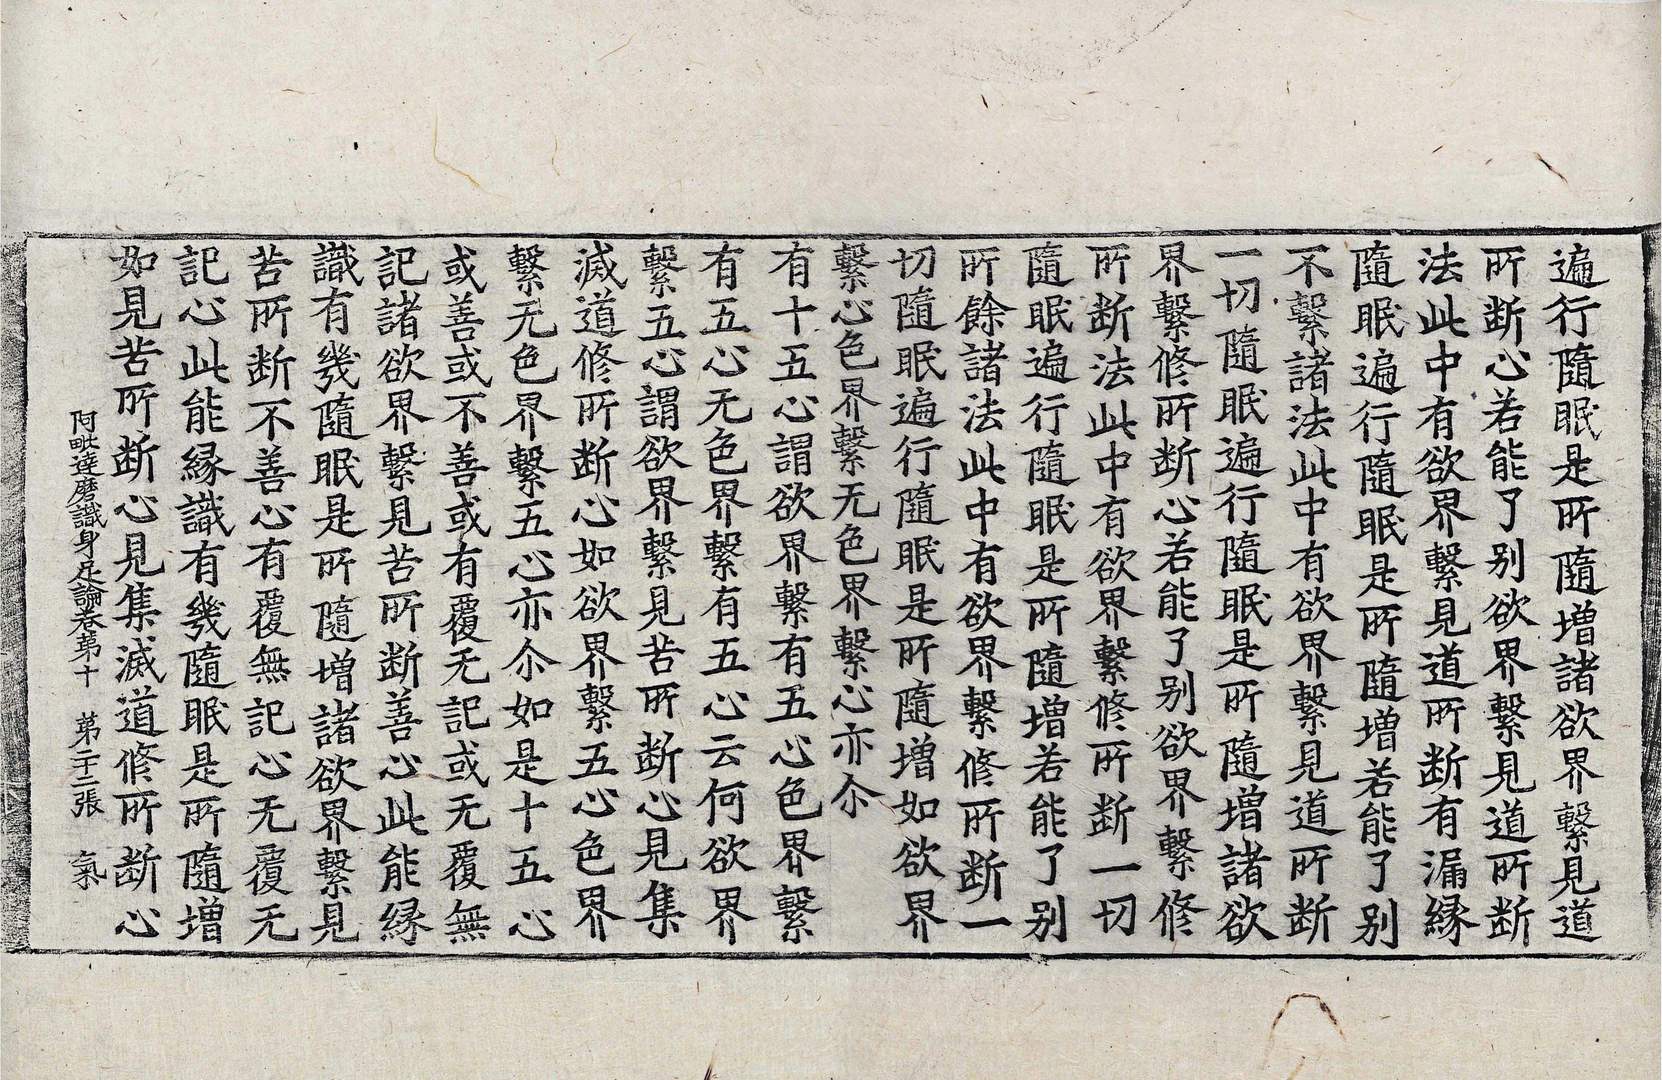 遍行隨眠是所隨增諸欲界繫見道
所断心若能了别欲界繫見道所断
法此中有欲界繫見道所断有漏縁
隨眠遍行隨眠是所隨增若能了别
不繫諸法此中有欲界繫見道所断
一切隨眠遍行隨眠是所隨增諸欲
界繫修所断心若能了别欲界繫修
所断法此中有欲界繫修所断一切
隨眠遍行隨眠是所隨增若能了别
所餘諸法此中有欲界繫修所断一
切隨眠遍行隨眠是所隨增如欲界
繫心色界繫无色界繫心亦尒
有十五心謂欲界繫有五心色界繫
有五心无色界繫有五心云何欲界
繫五心謂欲界繫見苦所断心見集
滅道修所断心如欲界繫五心色界
繫无色界繫五心亦尒如是十五心
或善或不善或有覆无記或无覆無
記諸欲界繫見苦所断善心此能縁
識有幾隨眠是所隨增諸欲界繫見
苦所断不善心有覆無記心无覆无
記心此能縁識有幾隨眠是所隨增
如見苦所断心見集滅道修所断心
阿毗達磨識身足論卷第十　第二十二張　氣